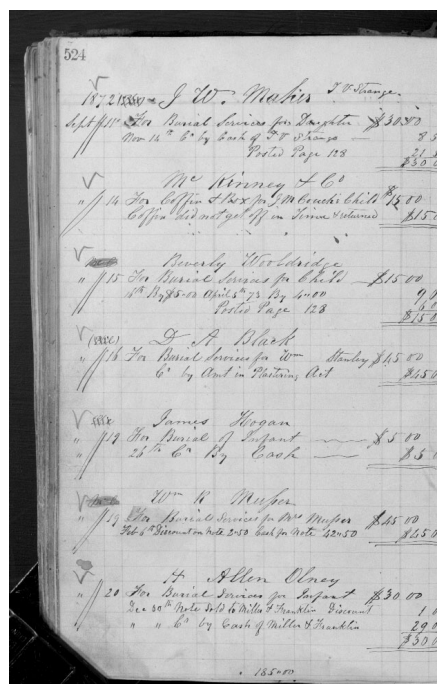 524
1872 J W. Maher T V Strange.
Sept 11th For Burial Services for Daughter $30.00
Nov 14th Cr by Cash of T V Strange — 8
Posted Page 128 21
$30 0
Mc Kinney & Co
" 14 For Coffin & Box for J M Couch's Child $15 00
Coffin did not get off in Time & returned $15 0
Beverly Wooldredge
" 15 For Burial Services for Child — $15.00
15th By $5.00 April 5th 73 By 4.00 9 0
Posted Page 128
$15 0
D A Black
" 18 For Burial Services for Wm Stanley $45.00
Cr by Amt in Plastering Act $45 0
James Hogan
" 19 For Burial of Infant $5 00
26th Cr By Cash $5
Wm R Musser
" 19 For Burial Services for Mrs Musser $45.00
Feb 6th Discount on Note 2.50 Cash for Note 42.50 $45 0
H Allen Olney
" 20 For Burial Services for Infant $30 00
Dec 30th Note Sold to Miller & Franklin Discount 1 0
" " Cr by Cash of Miller & Franklin 29 0
$30 0
185.00